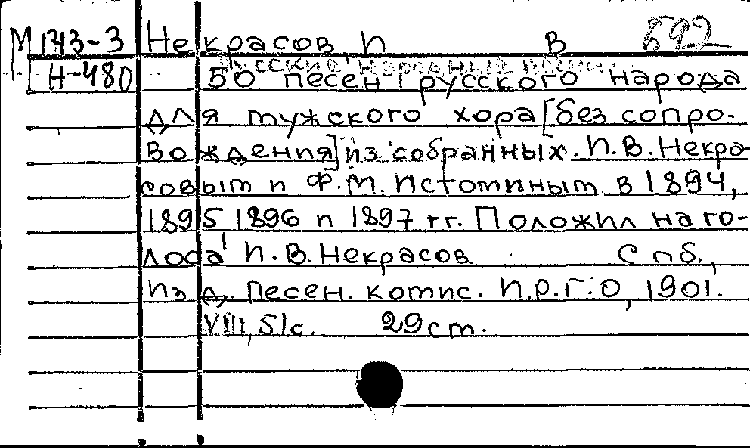 М 143-3 Некрасов И В 692
Н-480 50 песен русского народа
для мужского хора [без сопро-
вождения] из собранных. И.В. Некра-
совым и Ф.М. Истоминым в 1894,
1895 1896 и 1897 гг. Положил на го-
лоса И.В. Некрасов Спб.,
Изд. Песен. комис. И.Р.Г.О, 1901.
VIII, 51с. 29см.